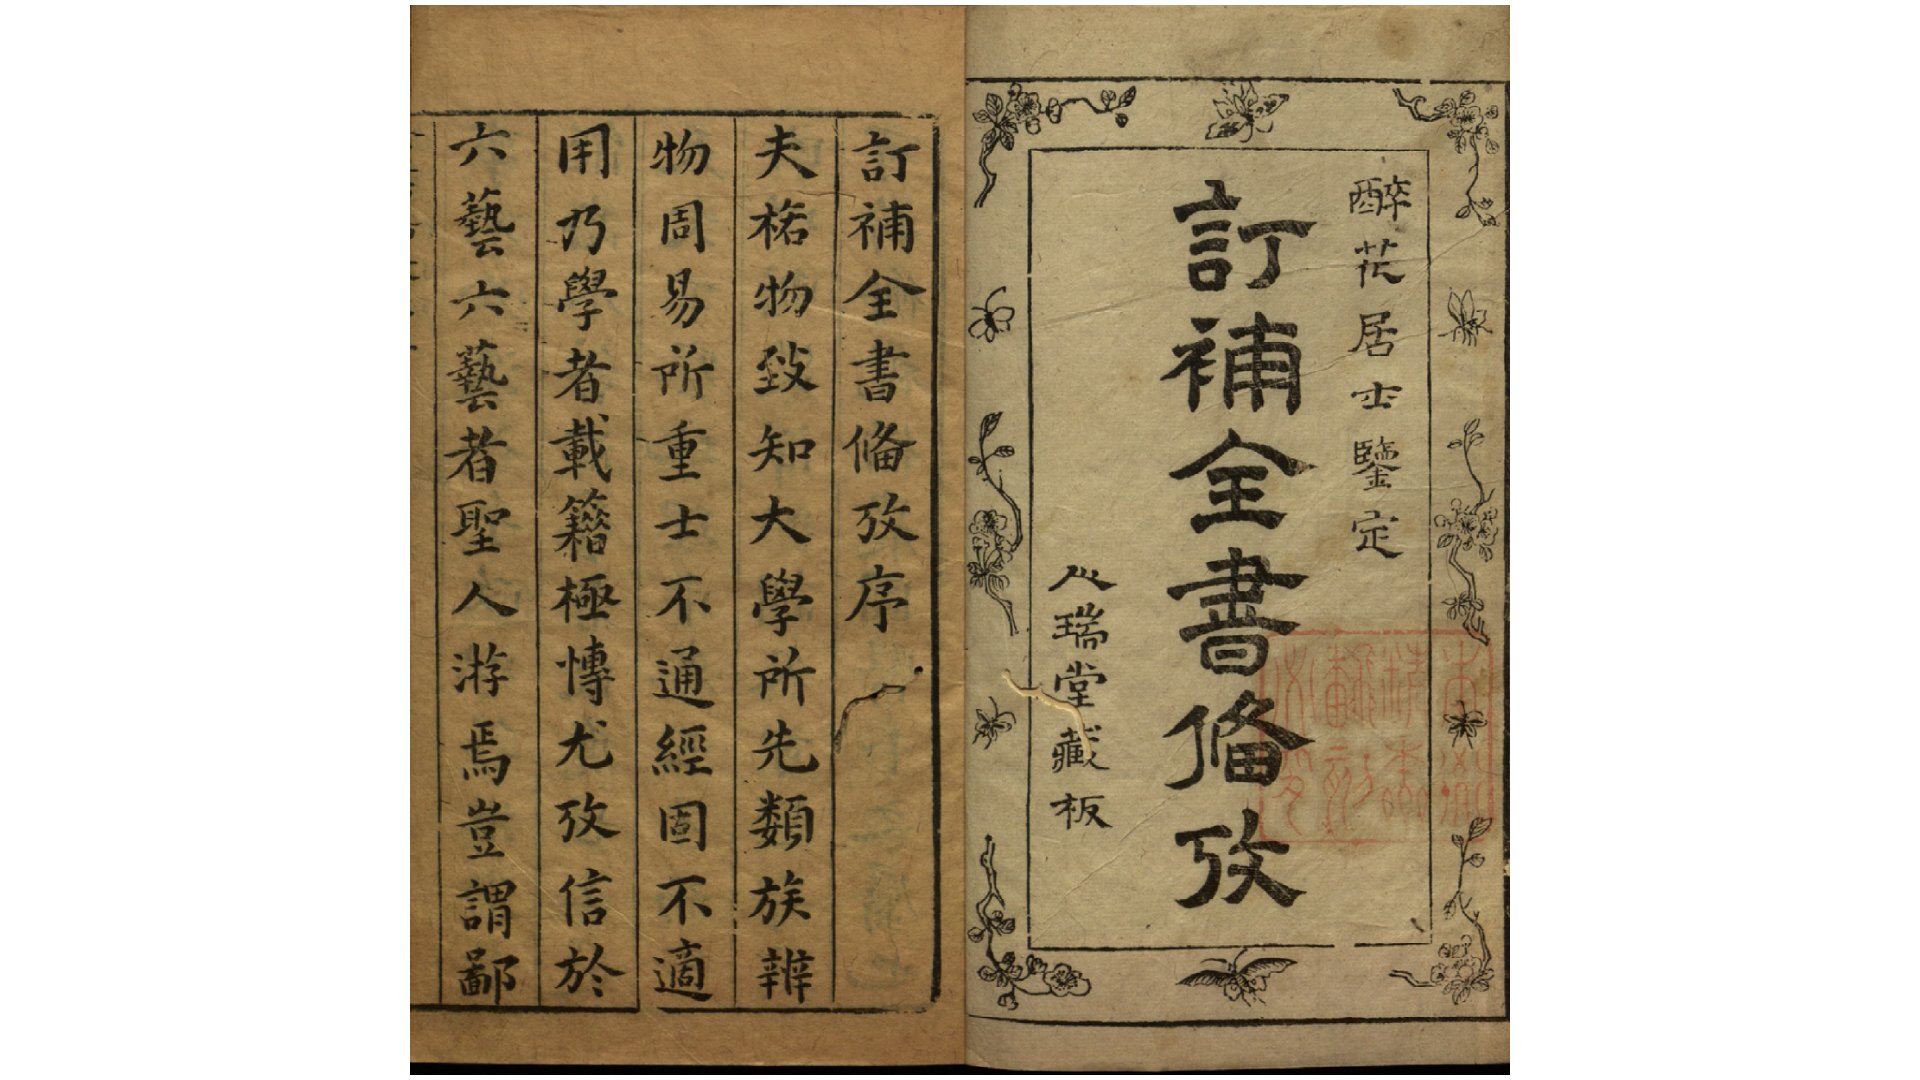 醉花居士鑒定
訂補全書偹攷
人瑞堂藏板
訂補全書偹攷序
夫格物致知大學所先類族辨
物周易所重士不通經固不適
用乃學者載籍極愽尤攷信於
六藝六藝者聖人游焉豈謂鄙